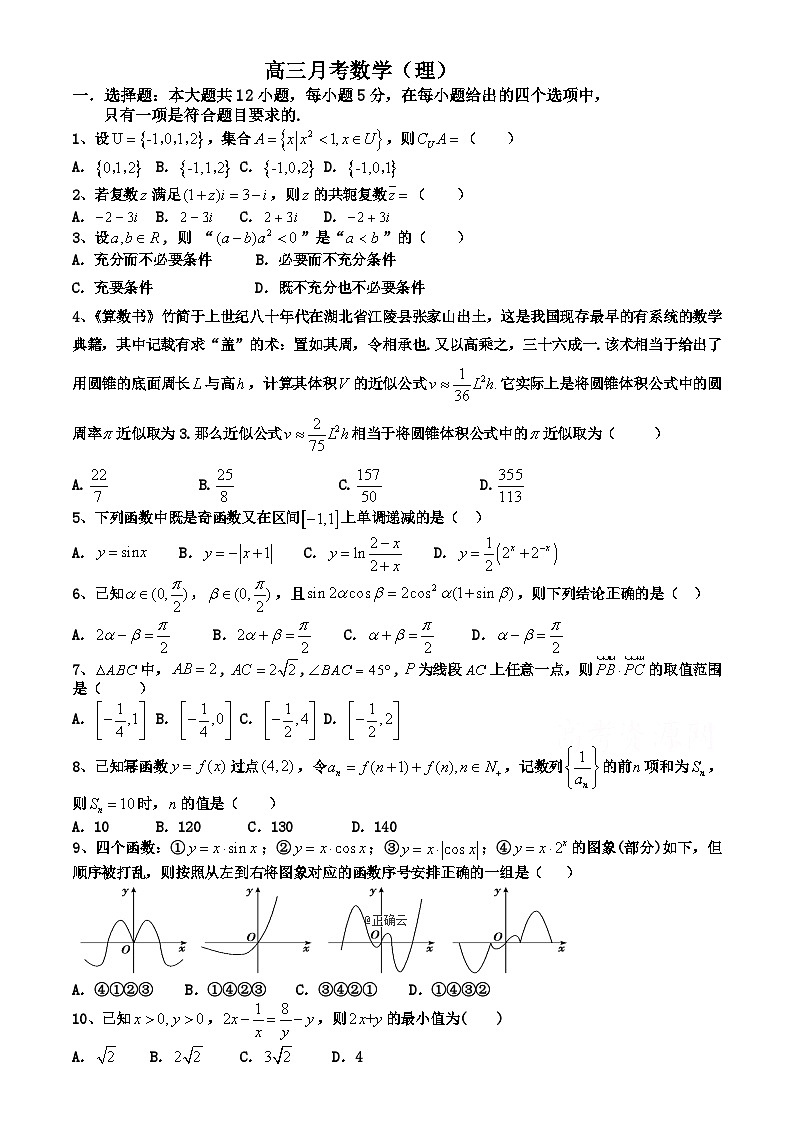 高三月考数学（理）
一．选择题：本大题共12小题，每小题5分，在每小题给出的四个选项中，
只有一项是符合题目要求的.
1、设U＝{-1,0,1,2}，集合A＝{x|x²＜1,x∈U}，则C_U A＝（　　）
A．{0,1,2} B．{-1,1,2} C．{-1,0,2} D．{-1,0,1}
2、若复数z满足(1+z)i＝3−i，则z的共轭复数z̄＝（　　）
A．−2−3i B．2−3i C．2+3i D．−2+3i
3、设a,b∈R，则 “(a−b)a²＜0”是“a＜b”的（　　）
A．充分而不必要条件 B．必要而不充分条件
C．充要条件 D．既不充分也不必要条件
4、《算数书》竹简于上世纪八十年代在湖北省江陵县张家山出土，这是我国现存最早的有系统的数学
典籍，其中记载有求“盖”的术：置如其周，令相承也.又以高乘之，三十六成一.该术相当于给出了
用圆锥的底面周长L与高h，计算其体积V的近似公式v≈1/36 L²h.它实际上是将圆锥体积公式中的圆
周率π近似取为3.那么近似公式v≈2/75 L²h相当于将圆锥体积公式中的π近似取为（　　）
A. 22/7 B. 25/8 C. 157/50 D. 355/113
5、下列函数中既是奇函数又在区间[−1,1]上单调递减的是（　）
A．y＝sinx B．y＝−|x+1 C．y＝ln (2−x)/(2+x) D．y＝1/2(2ˣ+2⁻ˣ)
6、已知α∈(0,π/2)，β∈(0,π/2)，且sin 2αcos β＝2cos²α(1+sin β)，则下列结论正确的是（　）
A．2α−β＝π/2 B．2α+β＝π/2 C．α+β＝π/2 D．α−β＝π/2
7、△ABC中，AB＝2，AC＝2√2，∠BAC＝45°，P为线段AC上任意一点，则PB·PC的取值范围
是（　　）
A．[−1/4,1] B．[−1/4,0] C．[−1/2,4] D．[−1/2,2]
8、已知幂函数y＝f(x)过点(4,2)，令aₙ＝f(n+1)+f(n),n∈N₊，记数列{1/aₙ}的前n项和为Sₙ，
则Sₙ＝10时，n的值是（　　）
A．10 B．120 C．130 D．140
9、四个函数：①y＝x·sin x；②y＝x·cos x；③y＝x·|cos x|；④y＝x·2ˣ的图象(部分)如下，但
顺序被打乱，则按照从左到右将图象对应的函数序号安排正确的一组是（　　）
y O x y O x y @正确云 O x y O x
A．④①②③ B．①④②③ C．③④②① D．①④③②
10、已知x＞0,y＞0，2x−1/x＝8/y−y，则2x+y的最小值为(　　)
A．√2 B．2√2 C．3√2 D．4